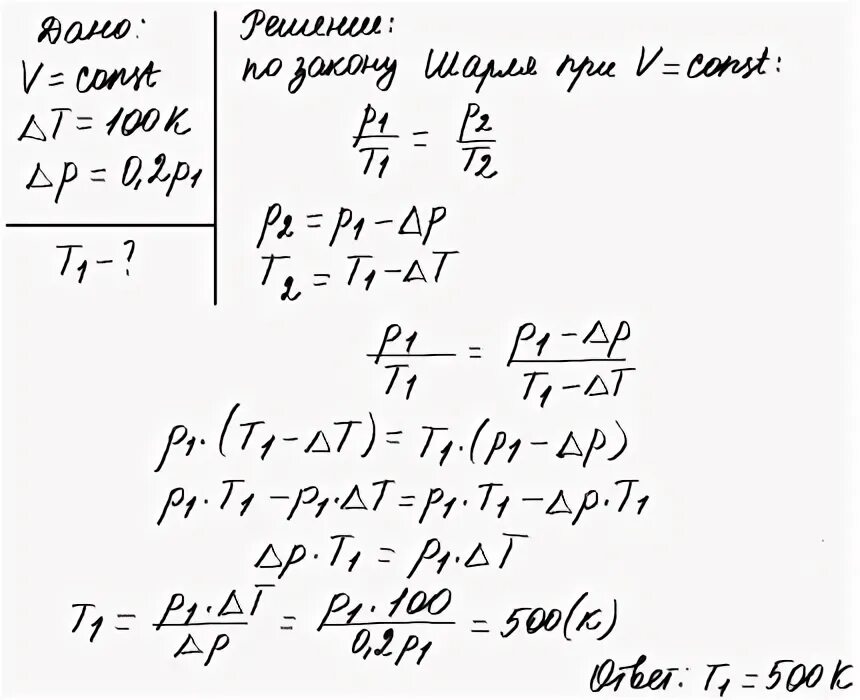 Дано:
V = const
ΔT = 100 К
Δp = 0,2p₁
T₁ - ?
Решение:
по закону Шарля при V = const:
p₁/T₁ = p₂/T₂
p₂ = p₁ - Δp
T₂ = T₁ - ΔT
p₁/T₁ = (p₁ - Δp)/(T₁ - ΔT)
p₁·(T₁ - ΔT) = T₁·(p₁ - Δp)
p₁·T₁ - p₁·ΔT = p₁·T₁ - Δp·T₁
Δp·T₁ = p₁·ΔT
T₁ = p₁·ΔT/Δp = p₁·100/0,2p₁ = 500(К)
Ответ: T₁ = 500 К